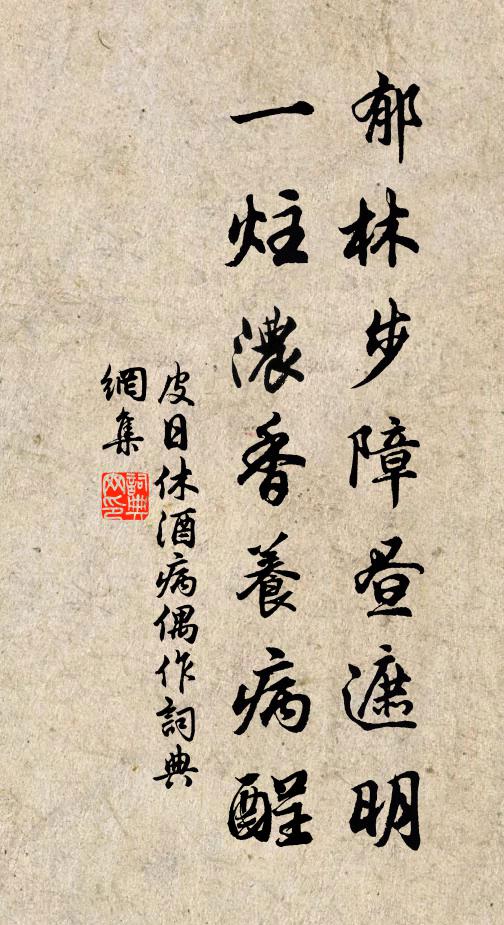 郁林步障昼遮明
一炷濃香養病酲
皮日休酒病偶作詞典
網集
詞典网印